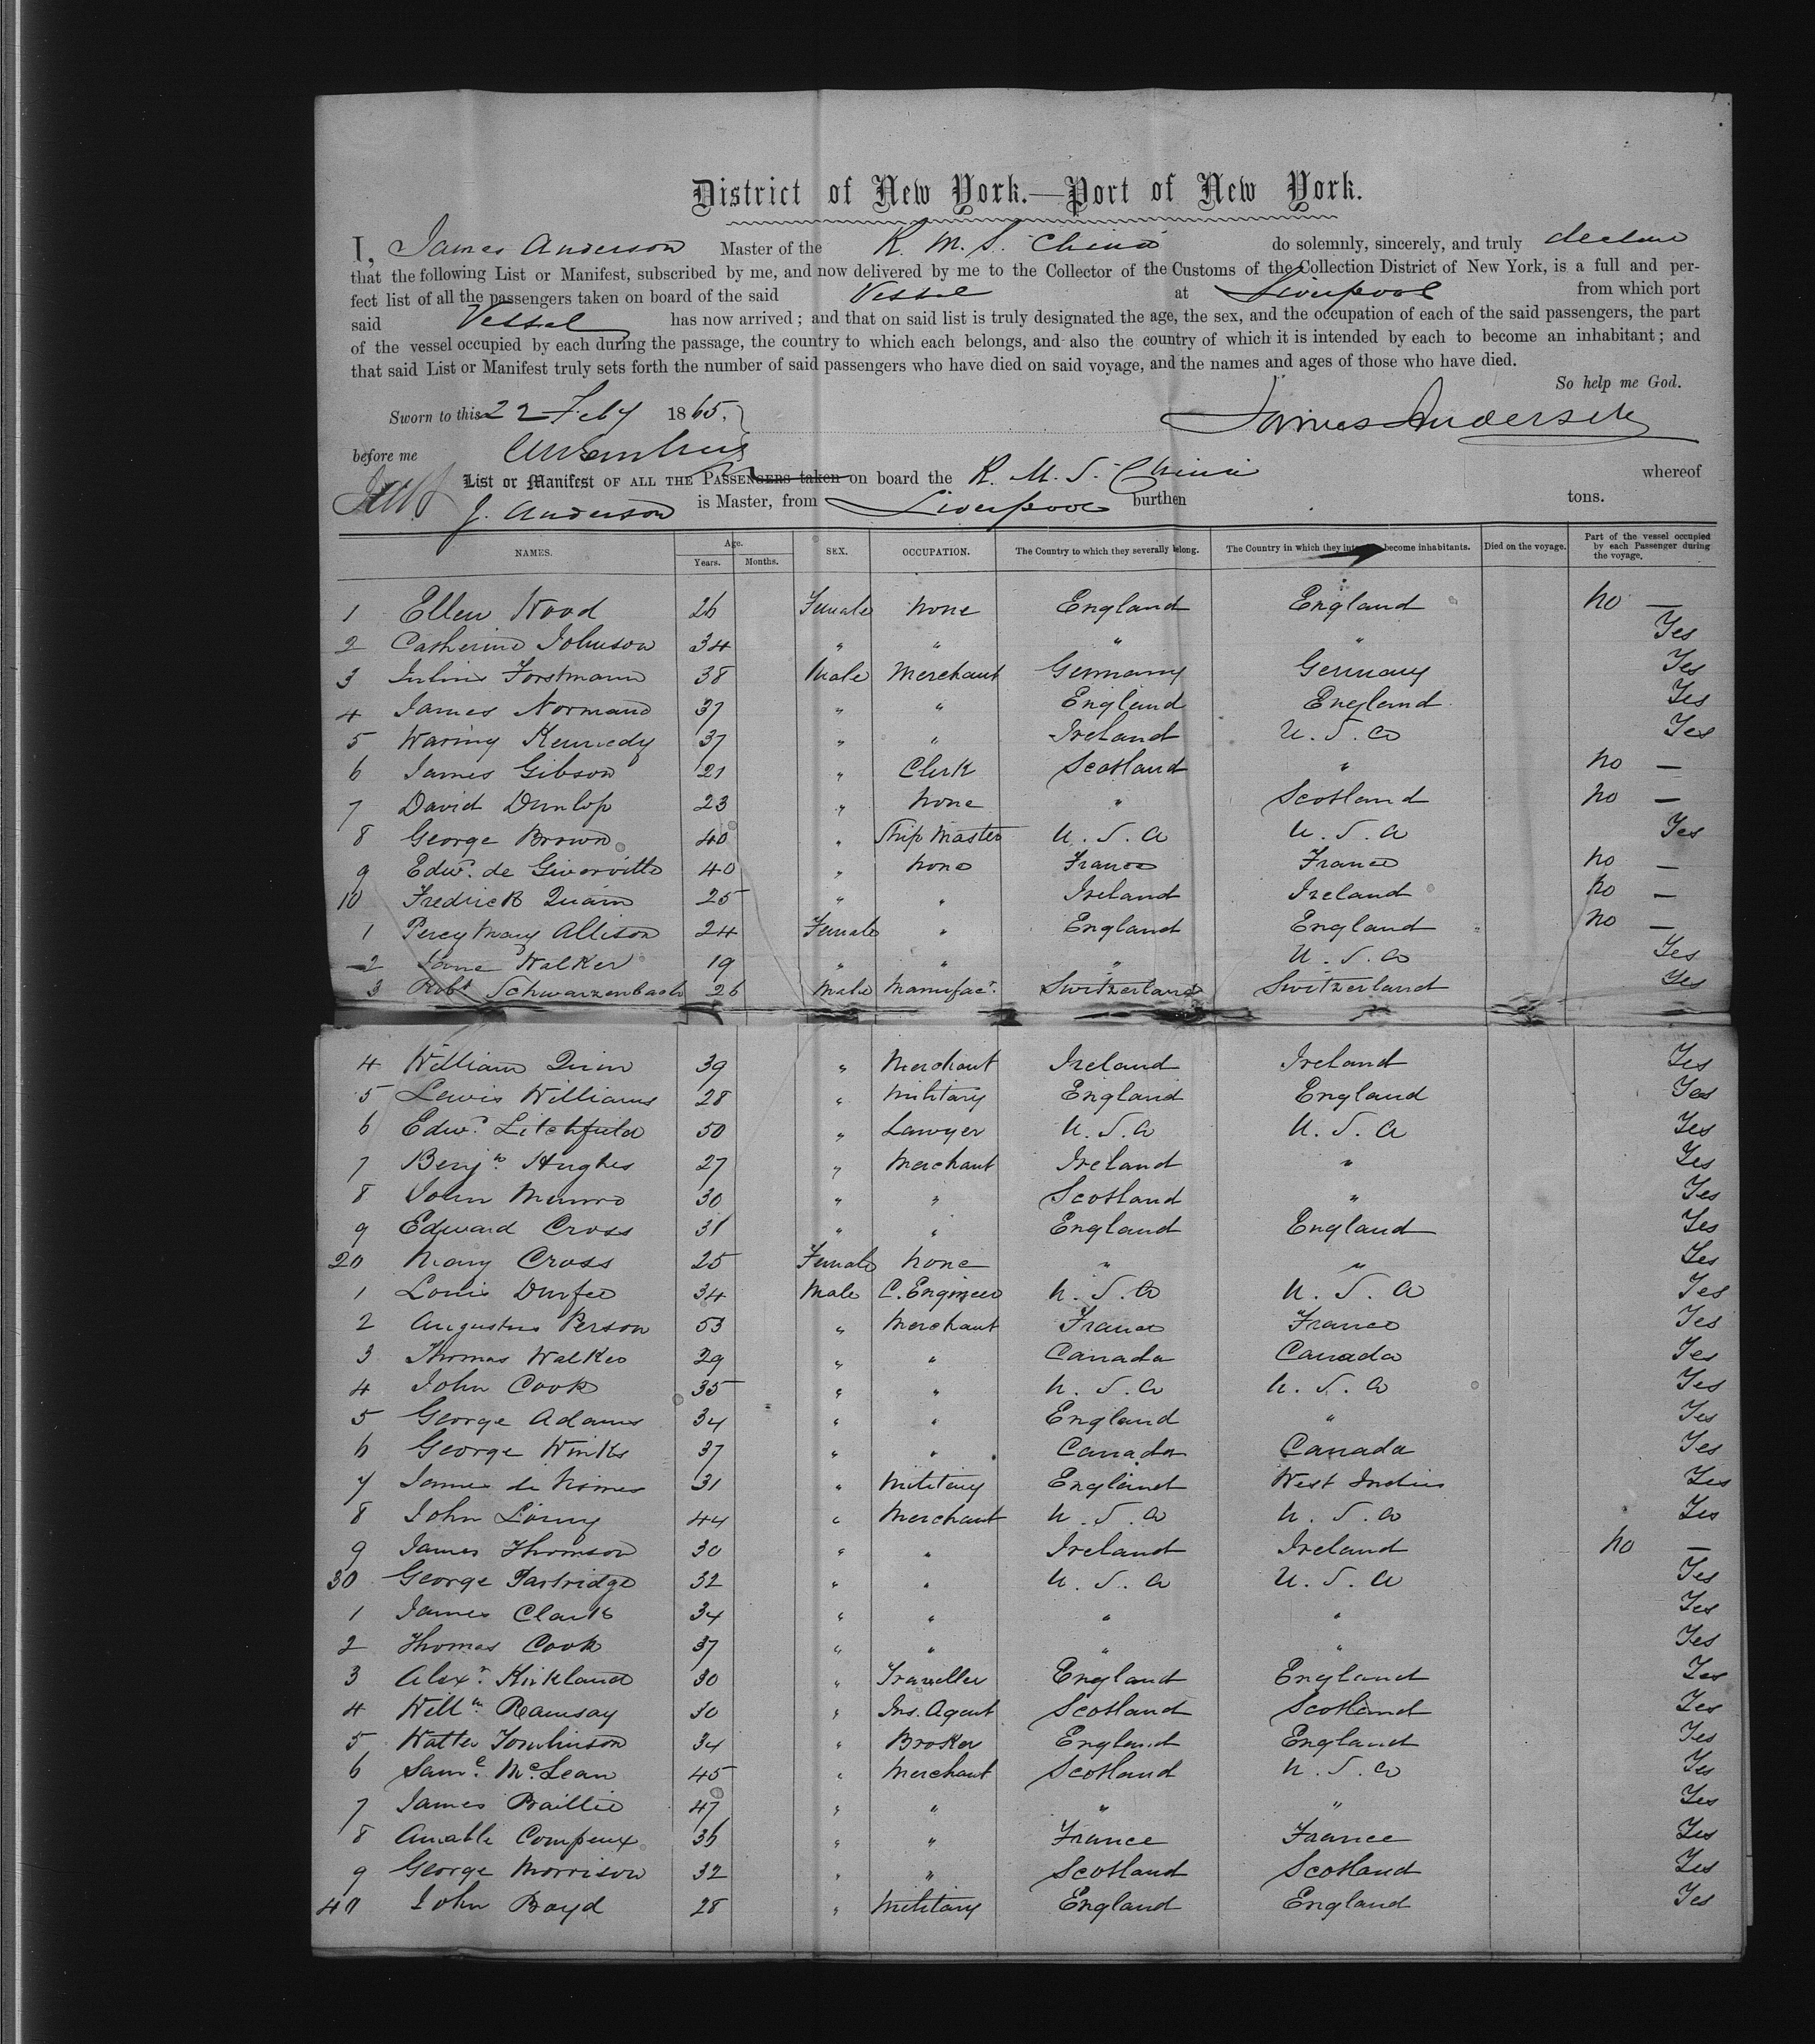 District of New York.—Port of New York.
I, James Anderson Master of the R. M. S. China do solemnly, sincerely, and truly declare
that the following List or Manifest, subscribed by me, and now delivered by me to the Collector of the Customs of the Collection District of New York, is a full and per-
fect list of all the passengers taken on board of the said Vessel at Liverpool from which port
said Vessel has now arrived; and that on said list is truly designated the age, the sex, and the occupation of each of the said passengers, the part
of the vessel occupied by each during the passage, the country to which each belongs, and also the country of which it is intended by each to become an inhabitant; and
that said List or Manifest truly sets forth the number of said passengers who have died on said voyage, and the names and ages of those who have died.
So help me God.
Sworn to this 22 Feby 1865. James Anderson
before me
List or Manifest OF ALL THE PASSENGERS taken on board the R. M. S. China whereof
J. Anderson is Master, from Liverpool burthen tons.
NAMES. Age. Years. Months. SEX. OCCUPATION. The Country to which they severally belong. The Country in which they intend to become inhabitants. Died on the voyage. Part of the vessel occupied by each Passenger during the voyage.
1 Ellen Wood 26 Female None England England No —
2 Catherine Johnson 34 " " " " Yes
3 Julius Forstmann 38 Male Merchant Germany Germany Yes
4 James Normand 37 " " England England Yes
5 Waring Kennedy 37 " " Ireland U.S.A Yes
6 James Gibson 21 " Clerk Scotland " No —
7 David Dunlop 23 " None " Scotland No —
8 George Brown 40 " Ship Master U.S.A U.S.A Yes
9 Edwd. de 40 " None France France No —
10 Fredrick Quain 25 " " Ireland Ireland No —
1 Percy Mary Allison 24 Female " England England No —
2 Jane Walker 19 " " " U.S.A Yes
3 Robt Schwarzenbach 26 Male Manufacr. Switzerland Switzerland Yes
4 William Quinn 39 " Merchant Ireland Ireland Yes
5 Lewis Williams 28 " Military England England Yes
6 Edwd. Litchfield 50 " Lawyer U.S.A U.S.A Yes
7 Benjn. Hughes 27 " Merchant Ireland " Yes
8 John Munro 30 " " Scotland " Yes
9 Edward Cross 31 " " England England Yes
20 Mary Cross 25 Female None " " Yes
1 Louis Durfee 34 Male C. Engineer U.S.A U.S.A Yes
2 Augustus Person 53 " Merchant France France Yes
3 Thomas Walker 29 " " Canada Canada Yes
4 John Cook 35 " " U.S.A U.S.A Yes
5 George Adams 34 " " England " Yes
6 George Winks 37 " " Canada Canada Yes
7 James de 31 " Military England West Indies Yes
8 John 44 " Merchant U.S.A U.S.A Yes
9 James Thomson 30 " " Ireland Ireland No —
30 George Partridge 32 " " U.S.A U.S.A Yes
1 James Clark 34 " " " " Yes
2 Thomas Cook 37 " " " " Yes
3 Alexr. Kirkland 30 " Traveller England England Yes
4 Willm Ramsay 30 " Ins. Agent Scotland Scotland Yes
5 Walter Tomlinson 34 " Broker England England Yes
6 Saml. McLean 45 " Merchant Scotland U.S.A Yes
7 James Baillie 47 " " " " Yes
8 Amable 36 " " France France Yes
9 George Morrison 32 " " Scotland Scotland Yes
40 John Boyd 28 " Military England England Yes